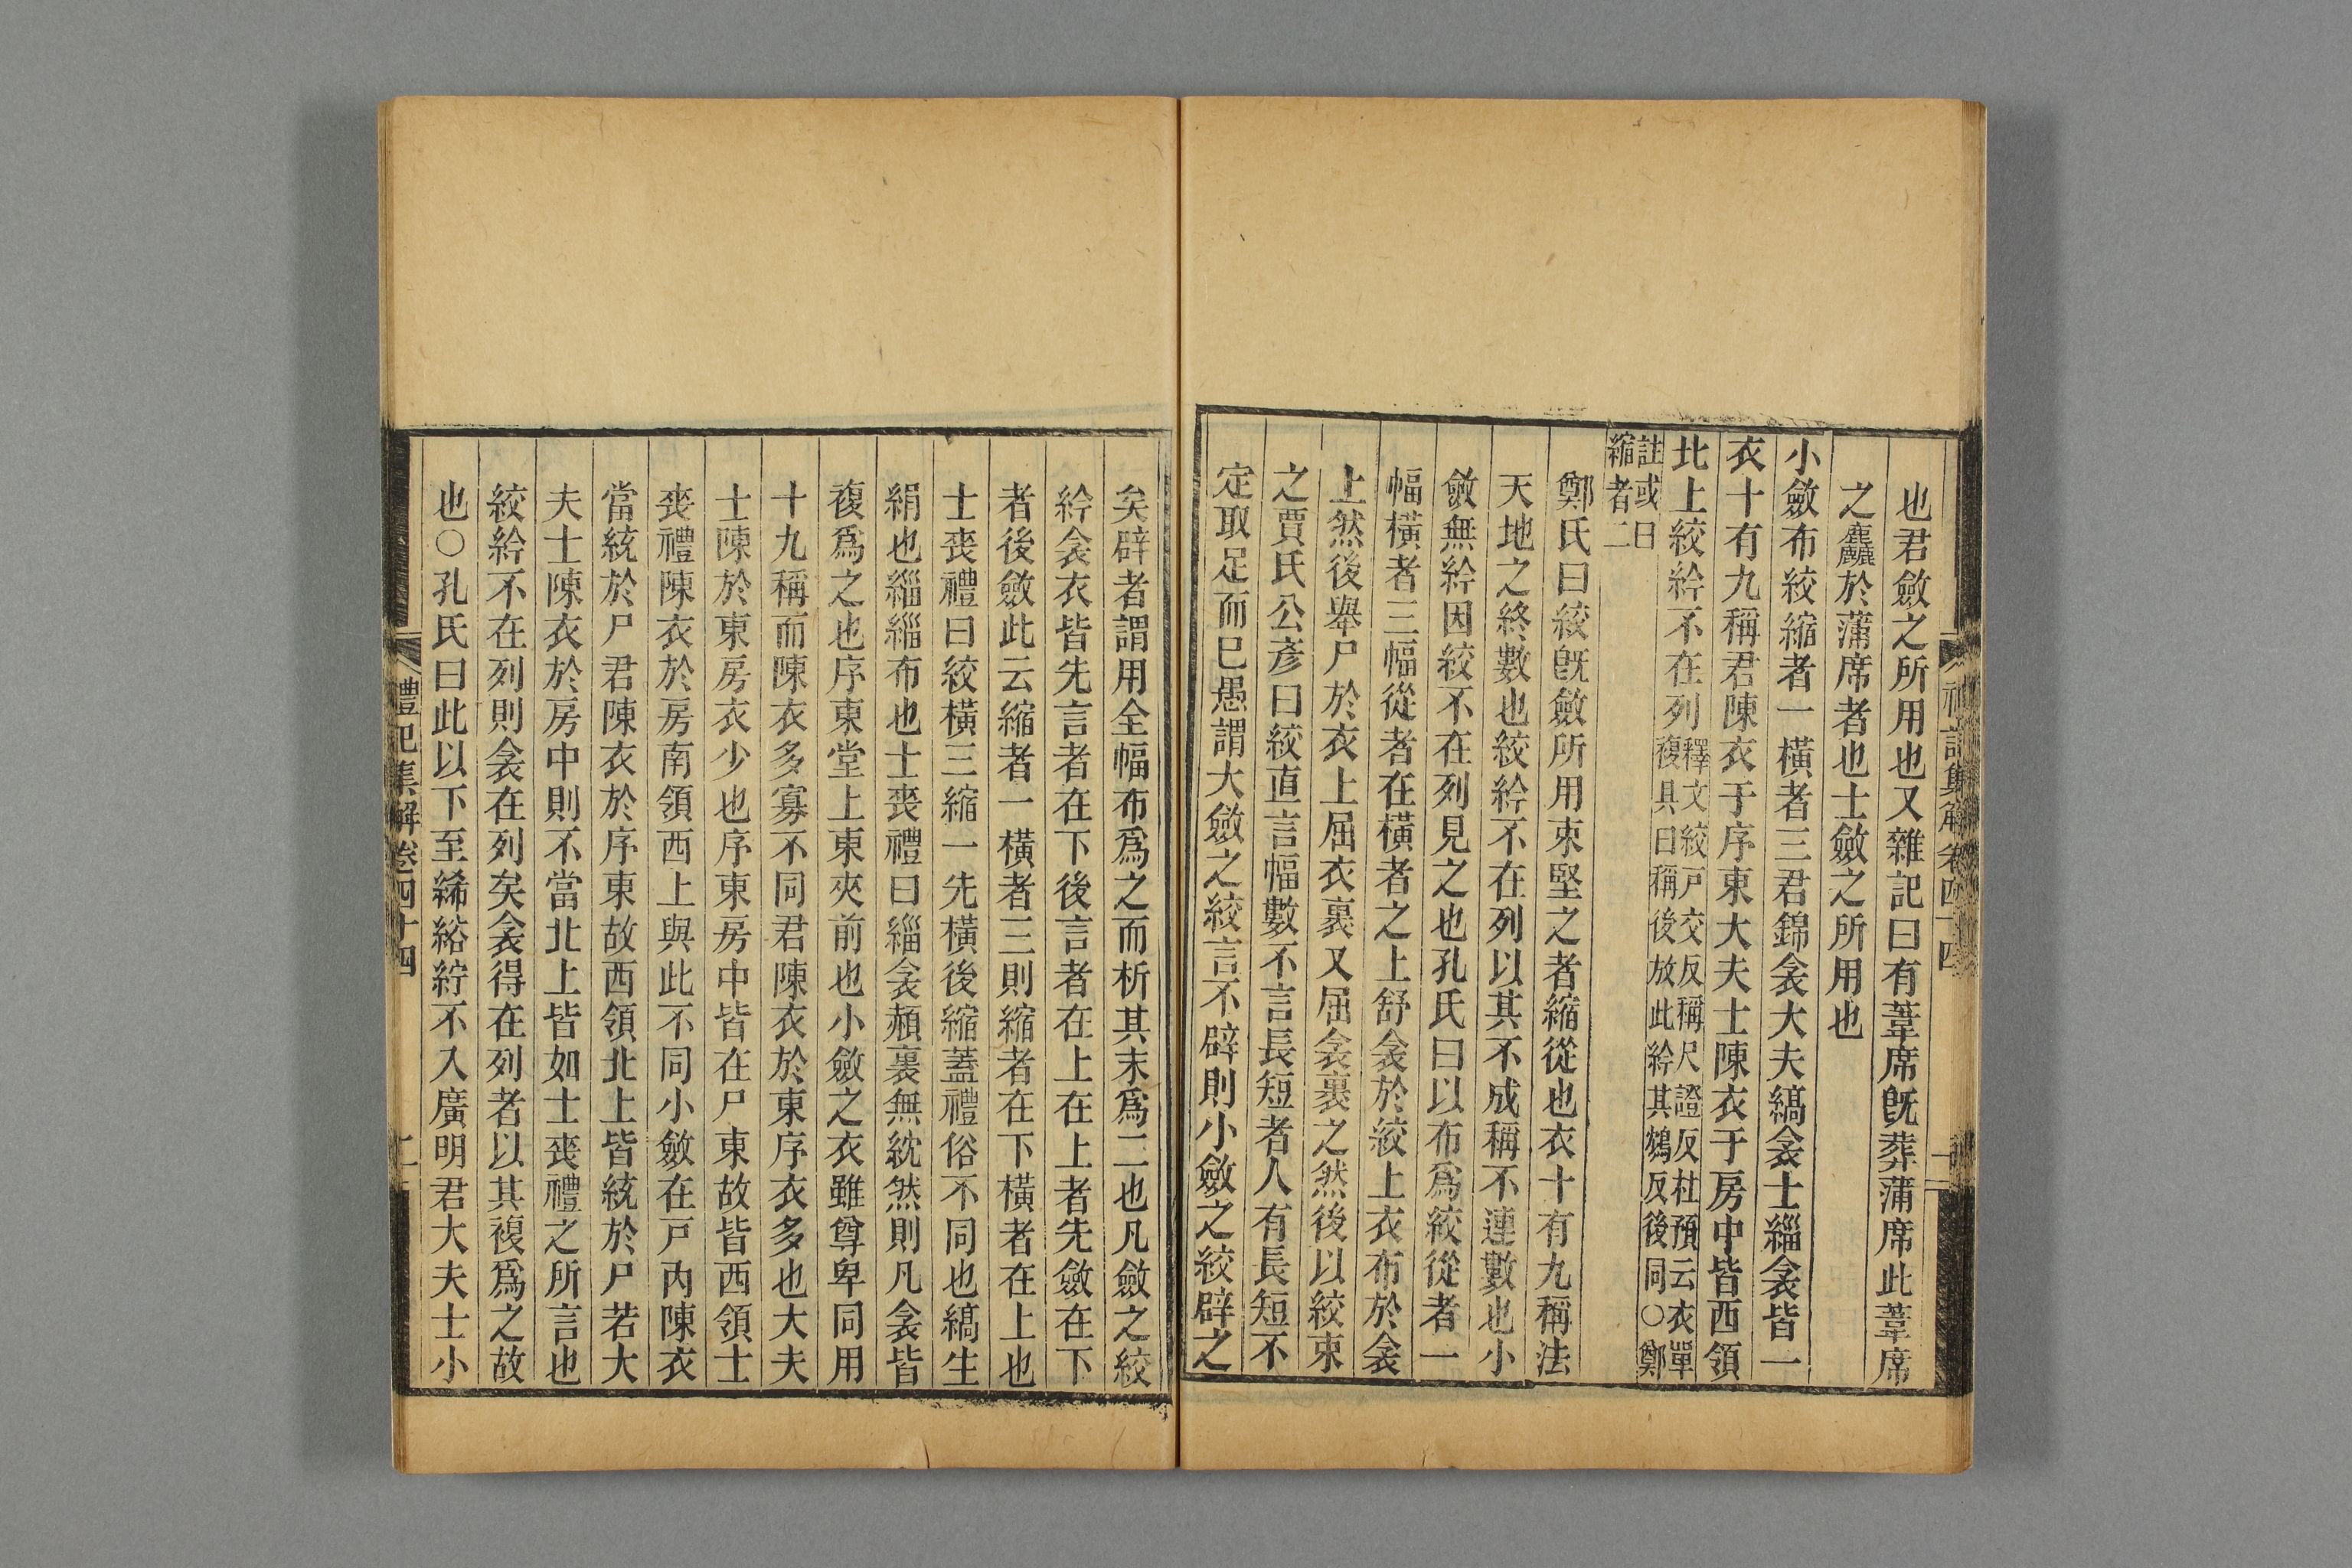 也君斂之所用也又雜記曰有葦席旣葬蒲席此葦席
之麤於蒲席者也士斂之所用也
小斂布絞縮者一橫者三君錦衾大夫縞衾士緇衾皆一
衣十有九稱君陳衣于序東大夫士陳衣于房中皆西領
北上絞紟不在列釋文絞戸交反稱尺證反杜預云衣單
複具曰稱後放此紟其鴆反後同○鄭
註或曰
縮者二
鄭氏曰絞旣斂所用束堅之者縮從也衣十有九稱法
天地之終數也絞紟不在列以其不成稱不連數也小
斂無紟因絞不在列見之也孔氏曰以布爲絞從者一
幅橫者三幅從者在橫者之上舒衾於絞上衣布於衾
上然後舉尸於衣上屈衣裏又屈衾裏之然後以絞束
之賈氏公彥曰絞直言幅數不言長短者人有長短不
定取足而已愚謂大斂之絞言不辟則小斂之絞辟之
矣辟者謂用全幅布爲之而析其末爲二也凡斂之絞
紟衾衣皆先言者在下後言者在上在上者先斂在下
者後斂此云縮者一橫者三則縮者在下橫者在上也
士喪禮曰絞橫三縮一先橫後縮蓋禮俗不同也縞生
絹也緇緇布也士喪禮曰緇衾赬裏無紞然則凡衾皆
複爲之也序東堂上東夾前也小斂之衣雖尊卑同用
十九稱而陳衣多寡不同君陳衣於東序衣多也大夫
士陳於東房衣少也序東房中皆在尸東故皆西領士
喪禮陳衣於房南領西上與此不同小斂在戸內陳衣
當統於尸君陳衣於序東故西領北上皆統於尸若大
夫士陳衣於房中則不當北上皆如士喪禮之所言也
絞紟不在列則衾在列矣衾得在列者以其複爲之故
也○孔氏曰此以下至絺綌紵不入廣明君大夫士小
禮記集解卷四十四